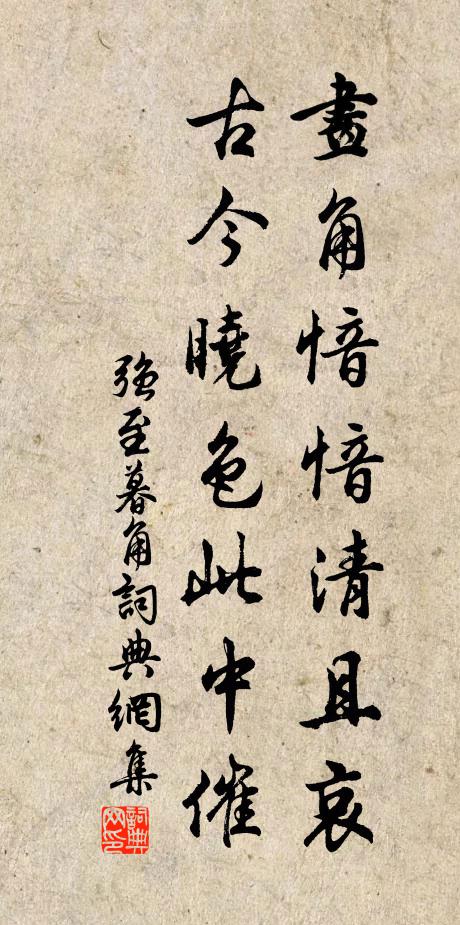 畫角愔愔清且哀
古今曉色此中催
強至暮角詞典網集
詞典網印